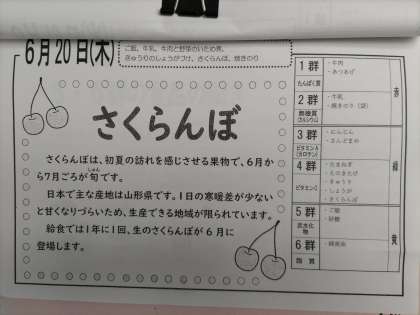 6月20日(木)
ご飯、牛乳、牛肉と野菜のいため煮、
きゅうりのしょうがづけ、さくらんぼ、焼きのり
さくらんぼ
さくらんぼは、初夏の訪れを感じさせる果物で、6月か
ら7月ごろが旬です。
しゅん
日本で主な産地は山形県です。1日の寒暖差が少ない
と甘くなりづらいため、生産できる地域が限られています。
給食では1年に1回、生のさくらんぼが6月に
登場します。
1群
たんぱく質
・牛肉
・あつあげ
2群
無機質
(カルシウム)
・牛乳
・焼きのり(袋)
3群
ビタミンA
(カロテン)
・にんじん
・さんどまめ
4群
ビタミンC
・たまねぎ
・えのきたけ
・きゅうり
・しょうが
・さくらんぼ
5群
炭水化物
・ご飯
・砂糖
6群
脂質
赤
緑
黄